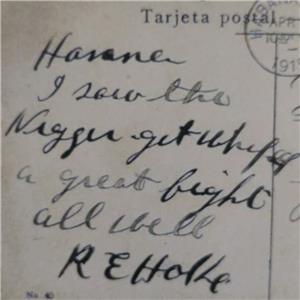 Tarjeta postal
APR
1915
Havana
I saw the
Nigger get
a great fight
all well
R E
No